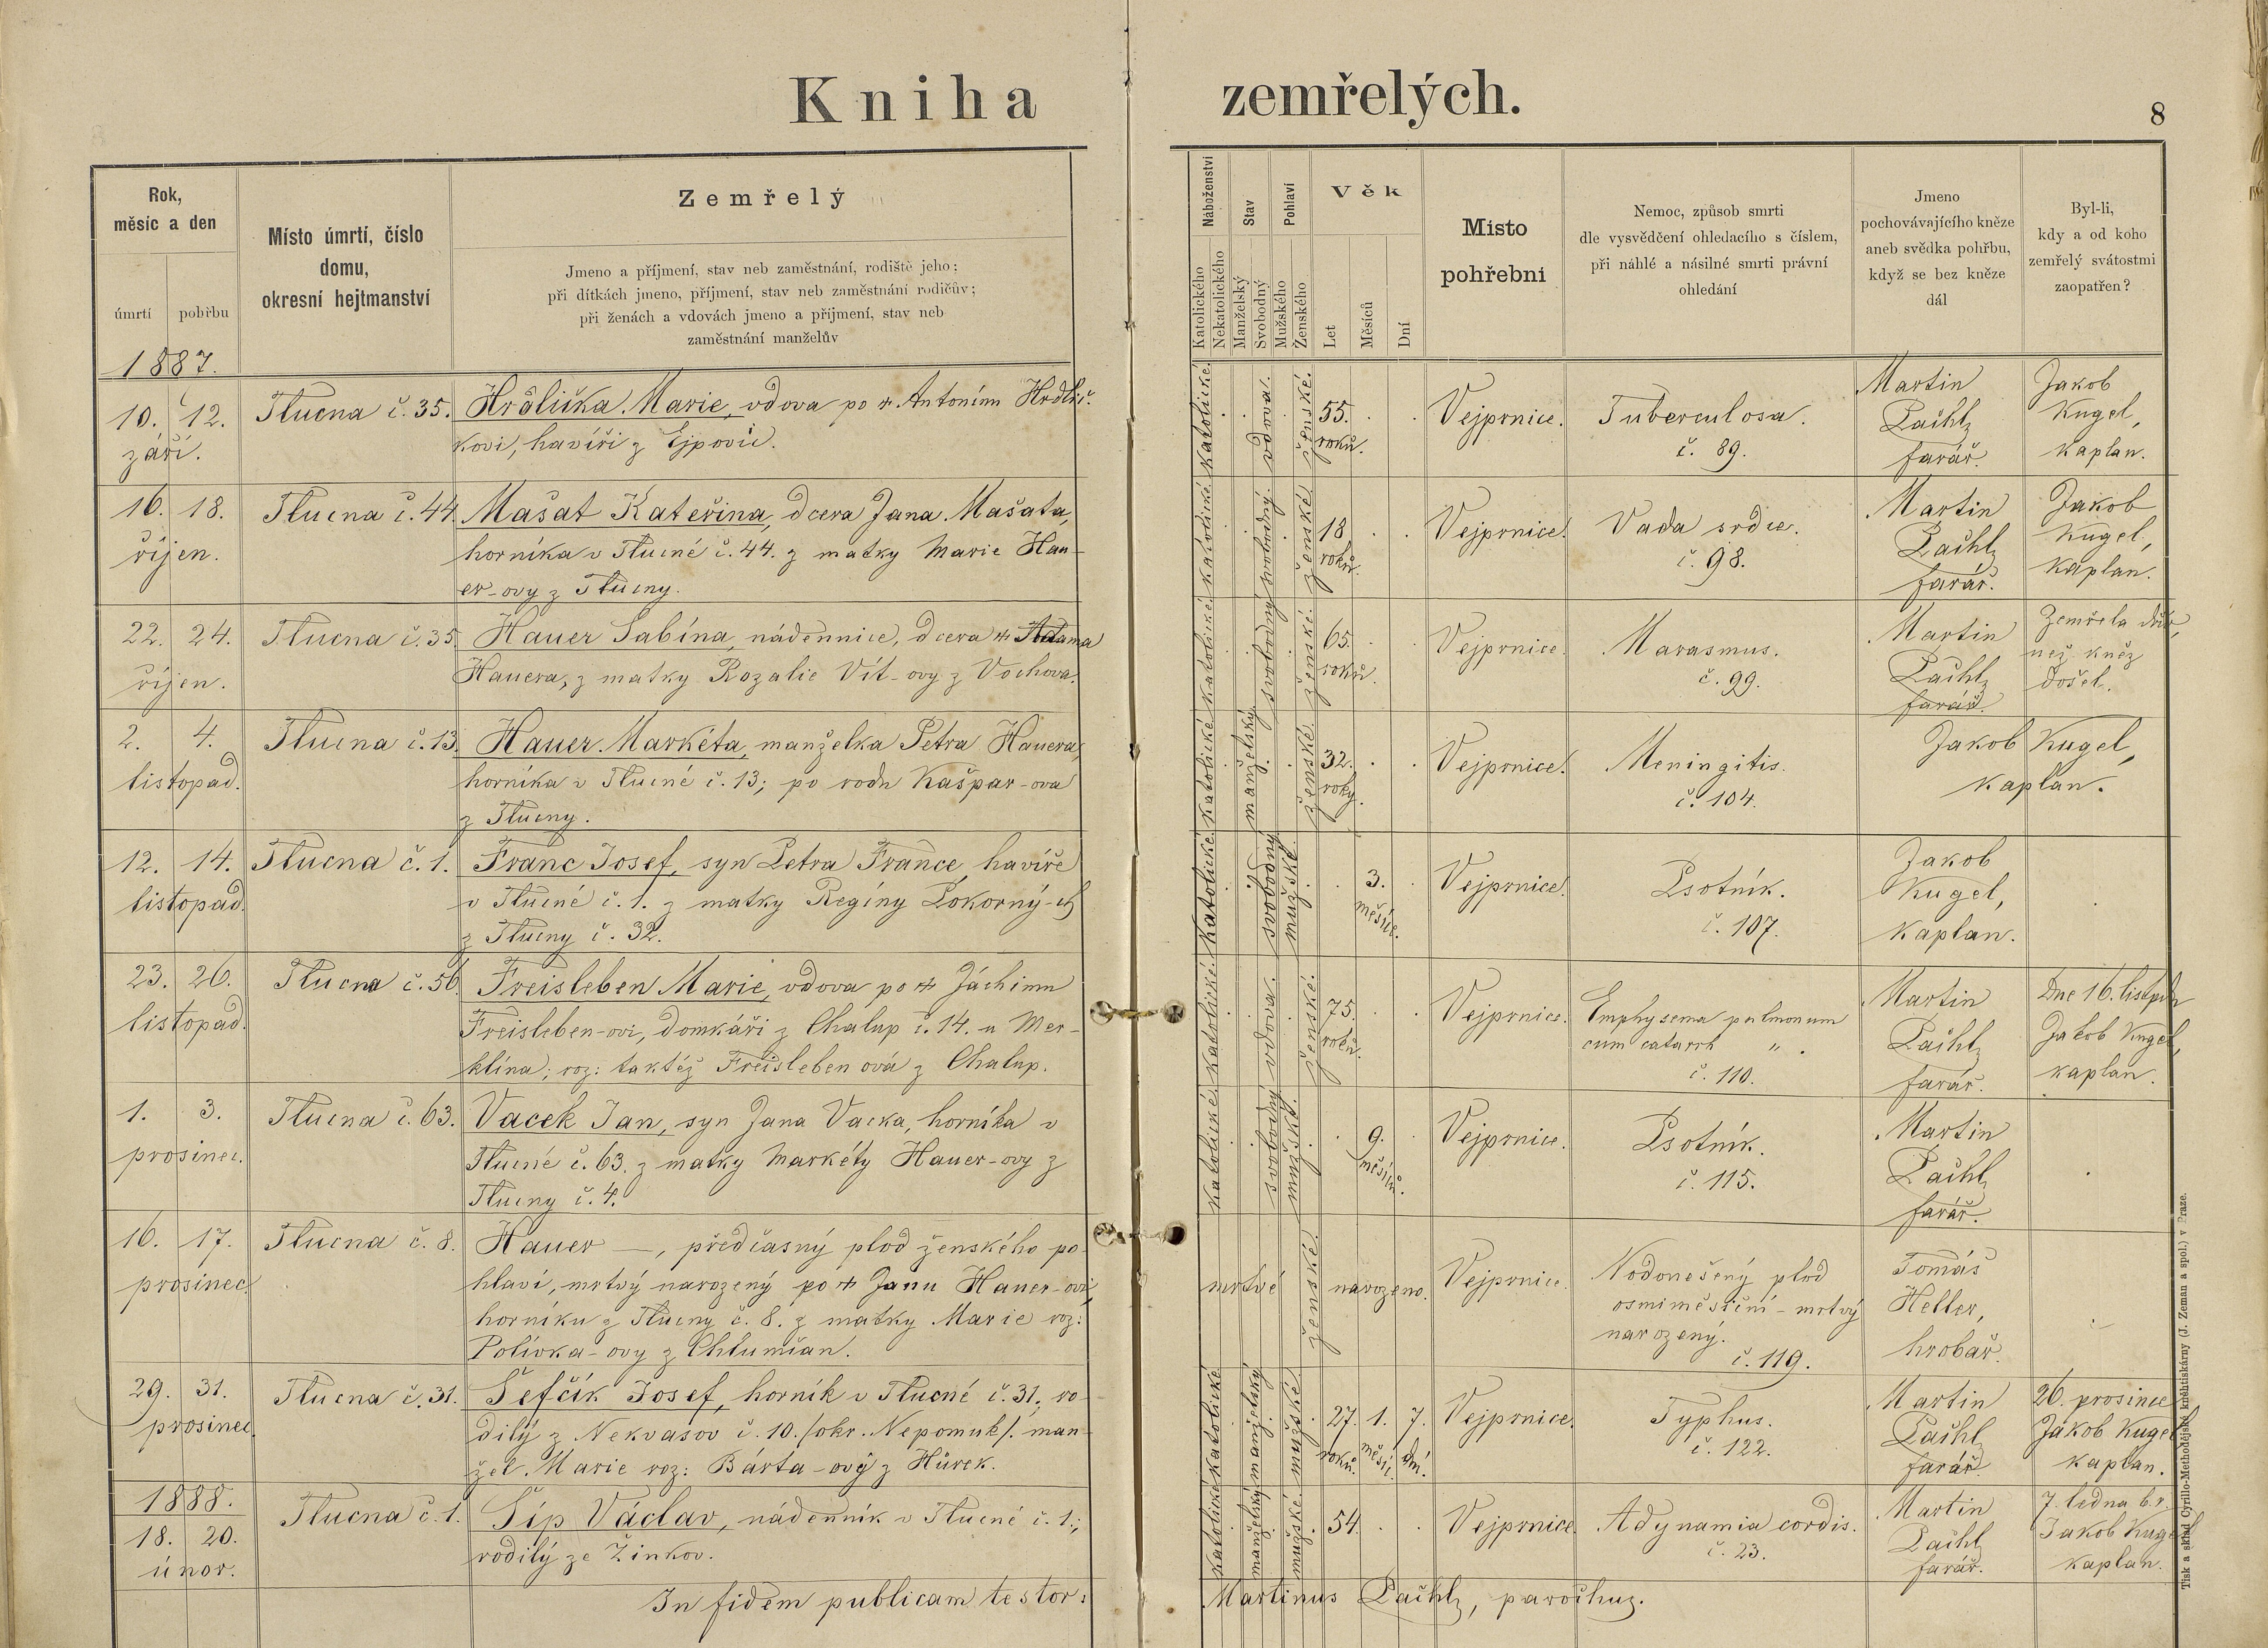 Kniha zemřelých.
8
Rok,
měsíc a den
úmrtí
pohřbu
Místo úmrtí, číslo
domu,
okresní hejtmanství
Zemřelý
Jmeno a příjmení, stav neb zaměstnání, rodiště jeho;
při dítkách jmeno, příjmení, stav neb zaměstnání rodičův;
při ženách a vdovách jmeno a příjmení, stav neb
zaměstnání manželův
Náboženství
Katolického
Nekatolického
Stav
Manželský
Svobodný
Pohlaví
Mužského
Ženského
Věk
Let
Měsíců
Dní
Místo
pohřební
Nemoc, způsob smrti
dle vysvědčení ohledacího s číslem,
při náhlé a násilné smrti právní
ohledání
Jmeno
pochovávajícího kněze
aneb svědka pohřbu,
když se bez kněze
dál
Byl-li,
kdy a od koho
zemřelý svátostmi
zaopatřen?
1887.
10. 12.
září.
Tlucna č. 35.
Hrdlička Marie, vdova po † Antonínu Hrdlič-
kovi, havíři z Ejpovic.
katolické.
vdova.
ženské.
55.
roků.
Vejprnice.
Tuberculosa.
č. 89.
Martin
Pachl,
farář.
Jakob
Kugel,
kaplan.
16. 18.
říjen.
Tlucna č. 44.
Mašat Kateřina, dcera Jana Mašata,
horníka v Tlucné č. 44. z matky Marie Hau-
er-ovy z Tlucny.
katolické.
svobodný.
ženské.
18
roků.
Vejprnice.
Vada srdce.
č. 98.
Martin
Pachl,
farář.
Jakob
Kugel,
kaplan.
22. 24.
říjen.
Tlucna č. 35.
Hauer Sabína, nádennice, dcera † Adama
Hauera, z matky Rozalie Vít-ovy z Vochova.
katolické.
svobodný
ženské.
65.
roků.
Vejprnice.
Marasmus.
č. 99.
Martin
Pachl,
farář.
Zemřela dřív,
než kněz
došel.
2. 4.
listopad.
Tlucna č. 13.
Hauer Markéta, manželka Petra Hauera,
horníka v Tlucné č. 13; po rodu Kašpar-ova
z Tlucny.
katolické
manželský.
ženské.
32.
roky.
Vejprnice.
Meningitis.
č. 104.
Jakob Kugel,
kaplan.
12. 14.
listopad.
Tlucna č. 1.
Franc Josef, syn Petra France, havíře
v Tlucné č. 1. z matky Regíny Pokorný-ch
z Tlucny č. 32.
katolické.
svobodný
mužské.
3.
měsíce.
Vejprnice.
Psotník.
č. 107.
Jakob
Kugel,
kaplan.
23. 26.
listopad.
Tlucna č. 56.
Freisleben Marie, vdova po † Jáchimu
Freisleben-ovi, domkáři z Chalup č. 14. u Mer-
klína; roz: taktéž Freisleben ová z Chalup.
katolické.
vdova.
ženské.
75.
roků.
Vejprnice.
Emphysema pulmonum
cum catarrh " .
č. 110.
Martin
Pachl,
farář.
Dne 16. listpdu
Jakob Kugel,
kaplan.
1. 3.
prosinec.
Tlucna č. 63.
Vacek Jan, syn Jana Vacka, horníka v
Tlucné č. 63. z matky Markéty Hauer-ovy z
Tlucny č. 4.
katolické
svobodný
mužské.
9.
měsíců.
Vejprnice.
Psotník.
č. 115.
Martin
Pachl,
farář.
16. 17.
prosinec.
Tlucna č. 8.
Hauer —, předčasný plod ženského po-
hlaví, mrtvý narozený po † Janu Hauer-ovi,
horníku z Tlucny č. 8. z matky Marie roz:
Polívka-ovy z Chlumčan.
mrtvé
ženské.
narozeno.
Vejprnice.
Nedonešený plod
osmiměsíční - mrtvý
narozený.
č. 119.
Tomáš
Heller,
hrobař.
29. 31.
prosinec.
Tlucna č. 31.
Šefčík Josef, horník v Tlucné č. 31., ro-
dilý z Nekvasov č. 10. /okr. Nepomuk/. man-
žel Marie roz: Bárta-ový z Hůrek.
katolické
manželský
mužské.
27. 1. 7.
roků. měsíc. dní.
Vejprnice.
Typhus.
č. 122.
Martin
Pachl,
farář.
26. prosince
Jakob Kugel
kaplan.
1888.
18. 20.
únor.
Tlucna č. 1.
Šíp Václav, nádenník v Tlucné č. 1.;
rodilý ze Žinkov.
katolické
manželský
mužské.
54.
Vejprnice.
Adynamia cordis.
č. 23.
Martin
Pachl,
farář.
7. ledna b.r.
Jakob Kugel
kaplan.
In fidem publicam testor: Martinus Pachl, parochus.
Tisk a sklad Cyrillo-Methodějské knihtiskárny (J. Zeman a spol.) v Praze.